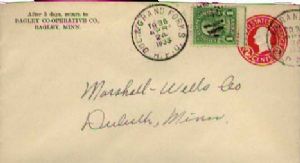 After 5 days, return to
BAGLEY CO-OPERATIVE CO.
BAGLEY, MINN.
GRAND FORKS
1935
Marshall-Wells Co
Duluth, Minn.